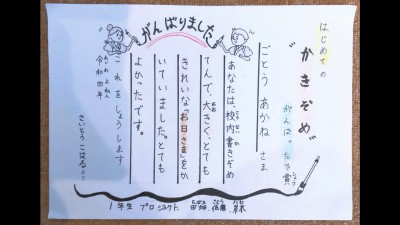 はじめての
"かきぞめ"
がんばったで賞
しょう
がんばりました
ごとう あかね さま
あなたは、校内書きぞめ
こうない
てんで、大きく、とても
おお
きれいな「お日さま」をか
いていました。とても
よかったです。
これをしょうします
令和四年
さいとう こはるより
1年生 プロジェクト